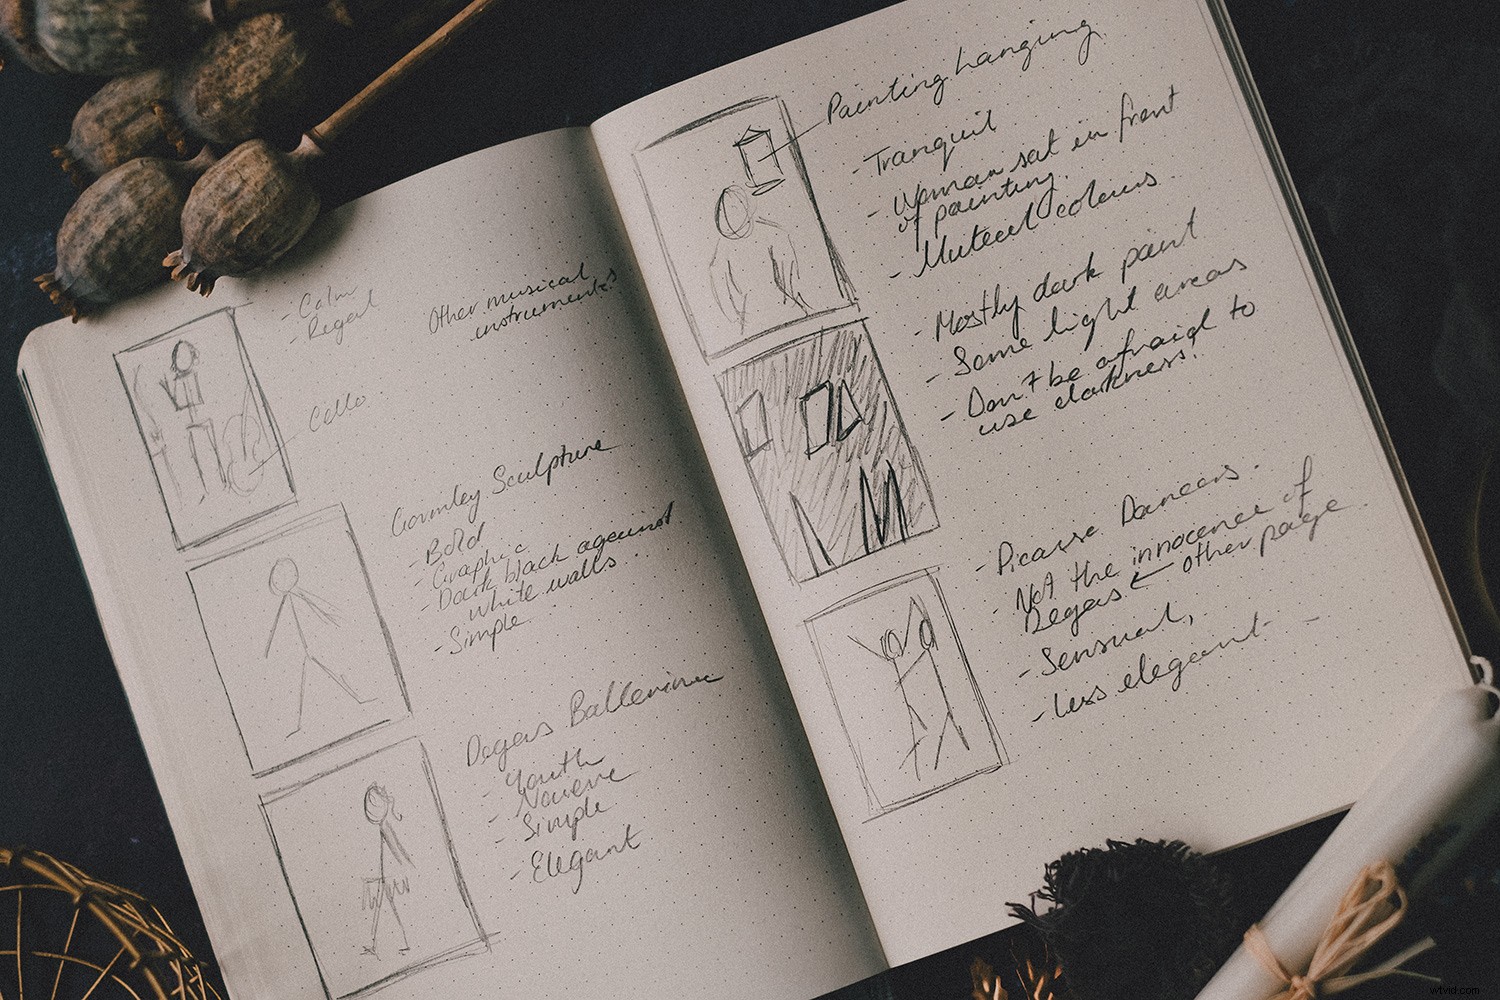 - Calm
- Regal
Other musical
instruments
Cello
Gormley Sculpture
- Bold
- Graphic
- Dark black against
white walls
- Simple
Degas Ballerina
- Youth
- Naieve
- Simple
- Elegant
Painting hanging
- Tranquil
- Woman sat in front
of painting.
- Muted colours
- Mostly dark paint
- Some light areas
- Don't be afraid to
use darkness.
- Picasso Dancers.
- Not the innocence of
Degas ← other page
- Sensual,
- Less elegant -
wtvid.com